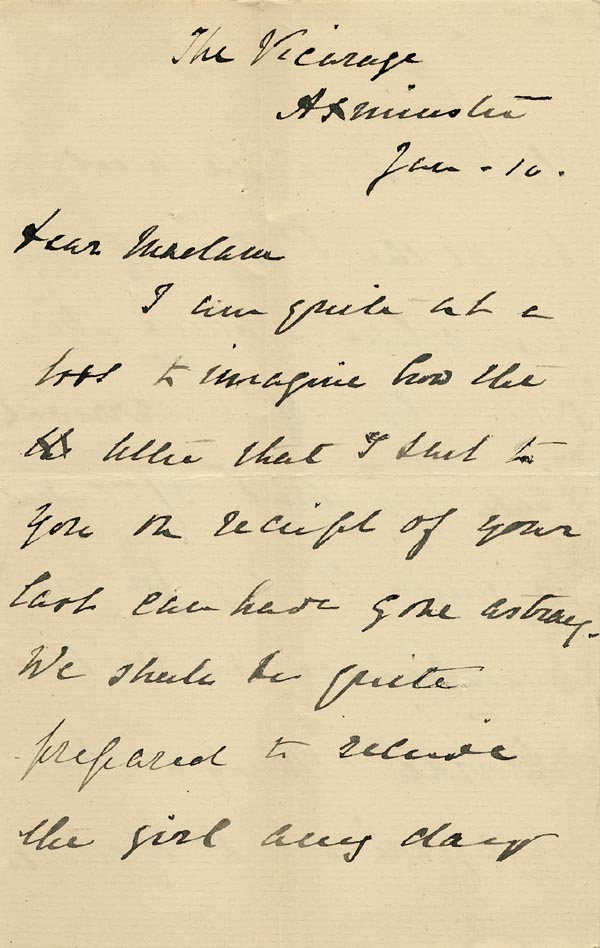 The Vicarage
Axminster
Jan - 10.
Dear Madam
I am quite at a
loss to imagine how the
letter that I sent to
you on receipt of your
last can have gone astray.
We shall be quite
prepared to receive
the girl any day